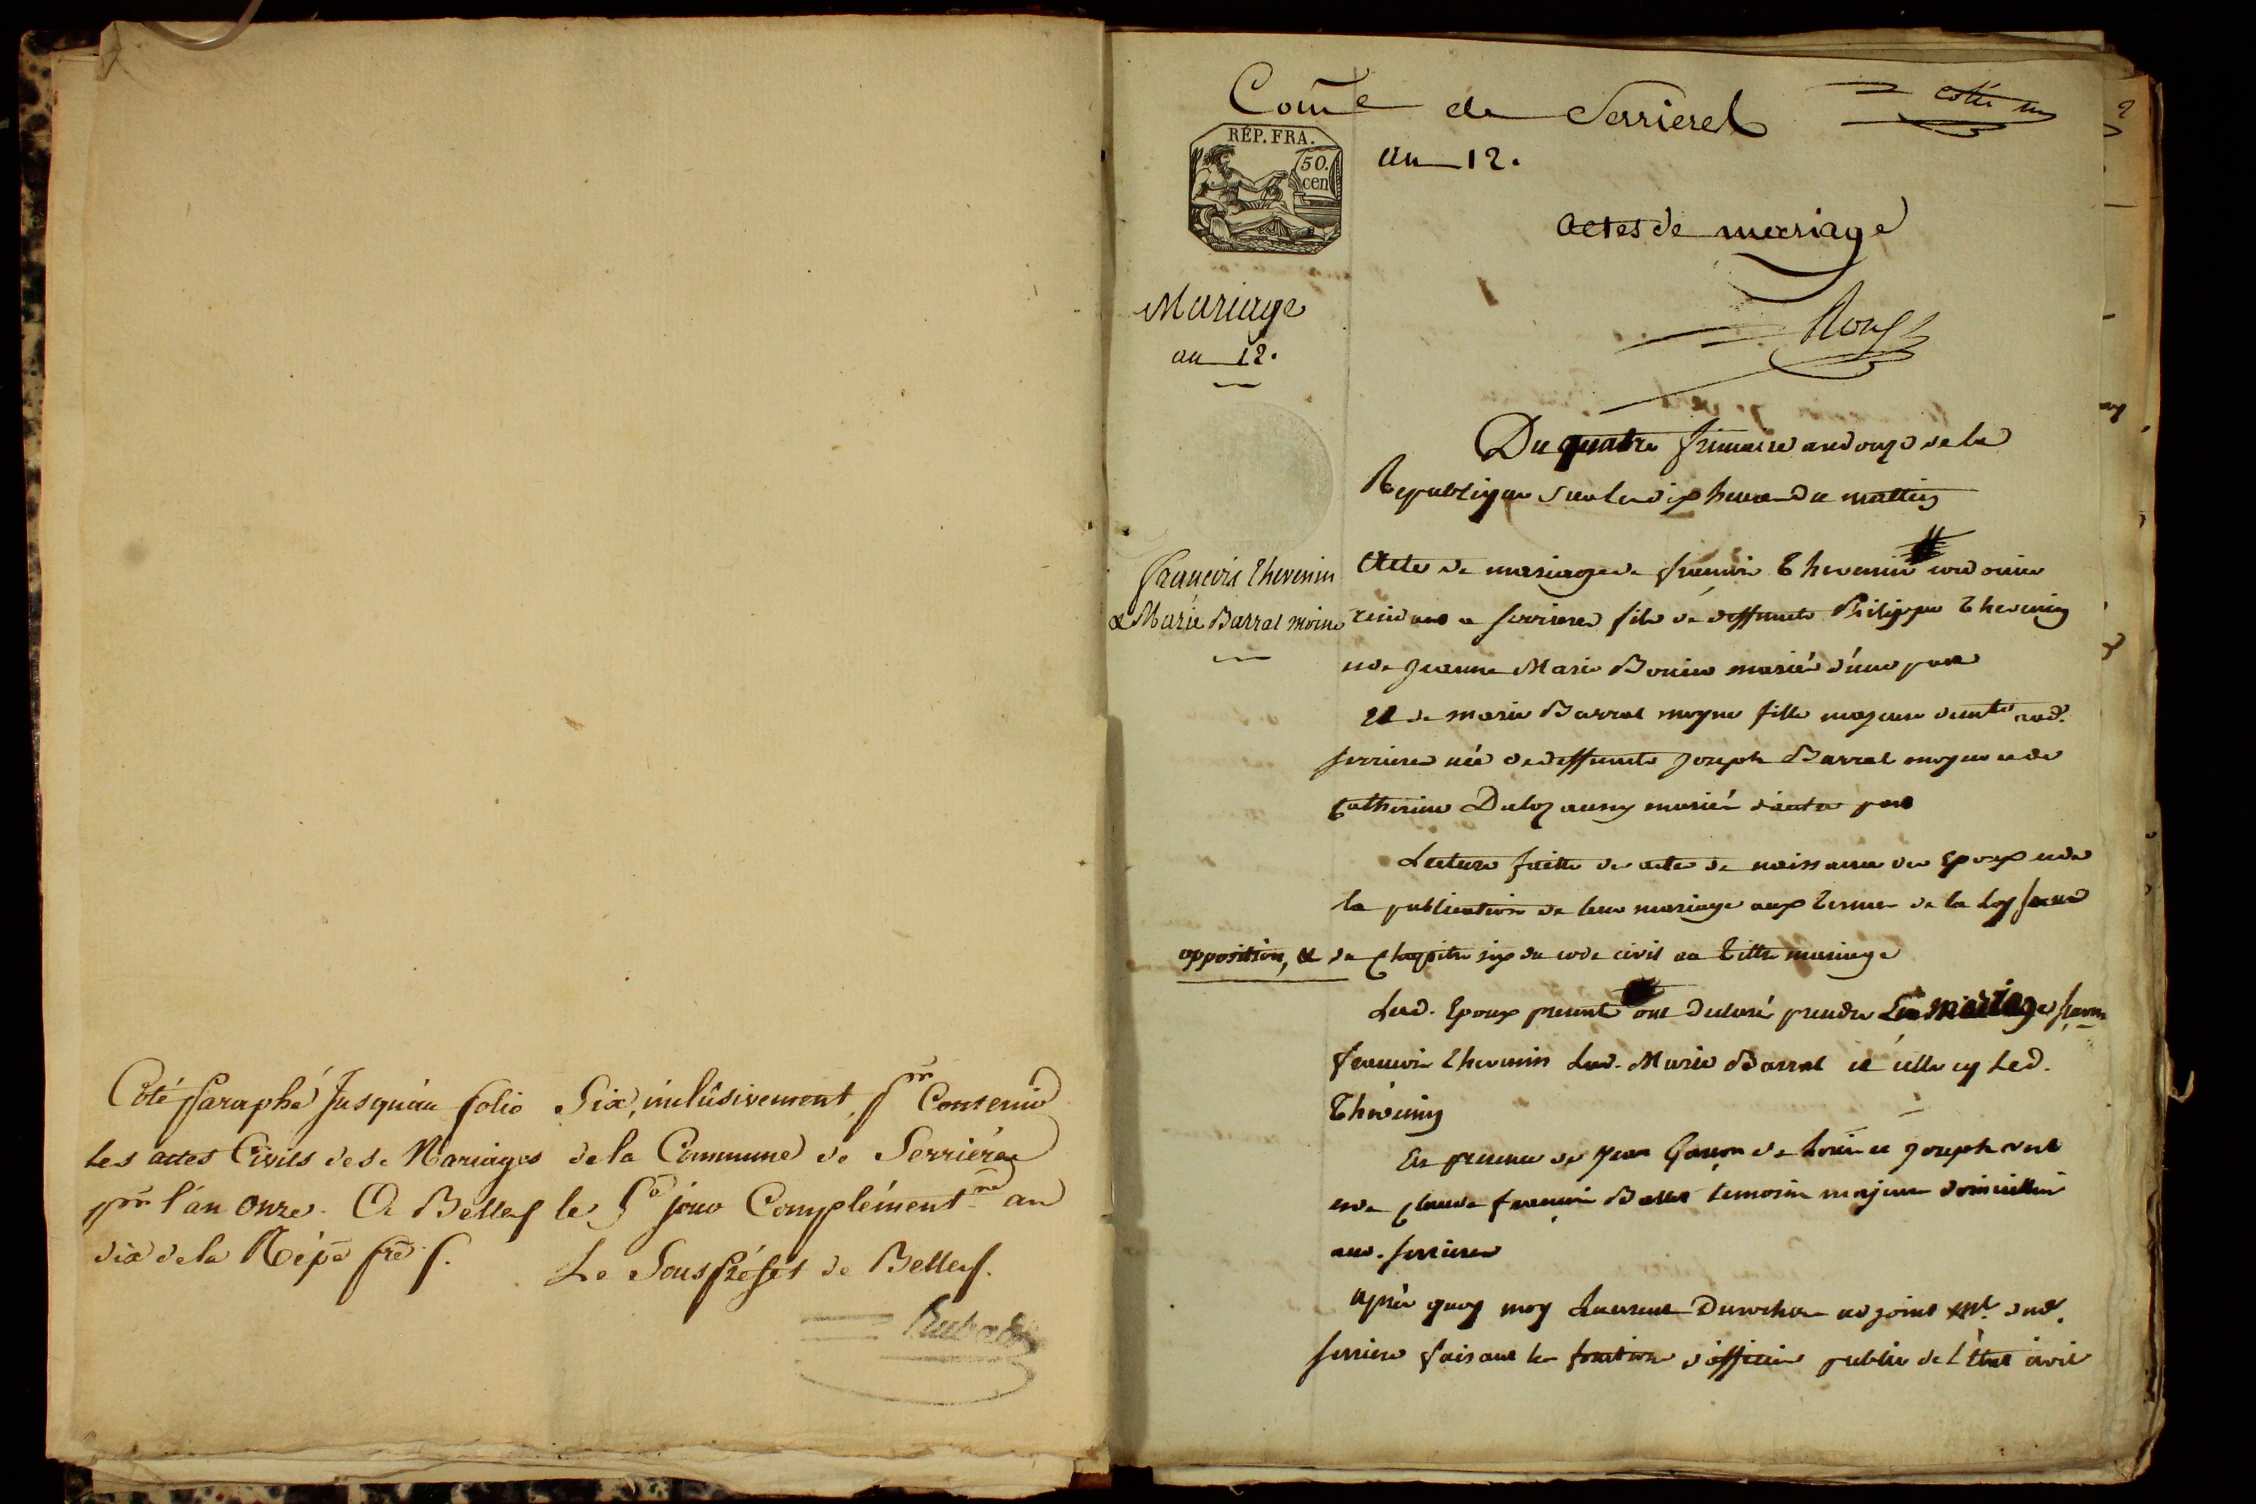 Coté paraphé Jusquàu folio Six, inclûsivement, pr Contenir
les actes Civils des. Mariages de la Commune de Serriéres
pr l'an onze. A Belley le 5e jour Complément.re an
dix de la Rép.e fr.se
Le Sous préfet de Belley.
Com.e de Serrieres
cotté un
RÉP. FRA.
50.
cen
an 12.
actes de mariage
Mariage
an 12.
Du quatre frimaire an douze de la
Republique sur les dix heures du mattin
françois Thevenin
& Marie Barral moine
Acte de mariage de françois Thevenin cordonier
residant a serrieres fils de deffunts Philippe Thevenin
et de Jeanne Marie Bonier mariés d'une part
Et de marie Barral moyne fille majeure dud.
serrieres née de deffunts Joseph Barral moyne et de
Catherine mariés d'autre part
Lecture faitte des actes de naissance des Epoux et de
la publication de leur mariage aux termes de la Loy sans
opposition, & du chapitre six du code civil au tittre mariage
Lesd. Epoux presents ont declaré prendre En mariage scavoir
françois Thevenin Lad. Marie Barral et celle cy Led.
Thevenin
En presence de Jean de et Joseph
et de claude françois Ballet temoins majeurs domicilies
aud. serrieres
après quoy moy Laurent Durochat adjoint dud.
serrieres faisant les fonctions d'officier public de l'Etat civil